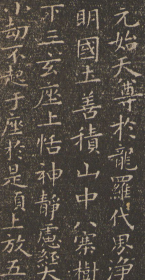 元始天尊於龍羅代恩淨
明國土善積山中八騫樹
下三玄座上恬神靜慮經大
小劫不起于座於是頂上放五